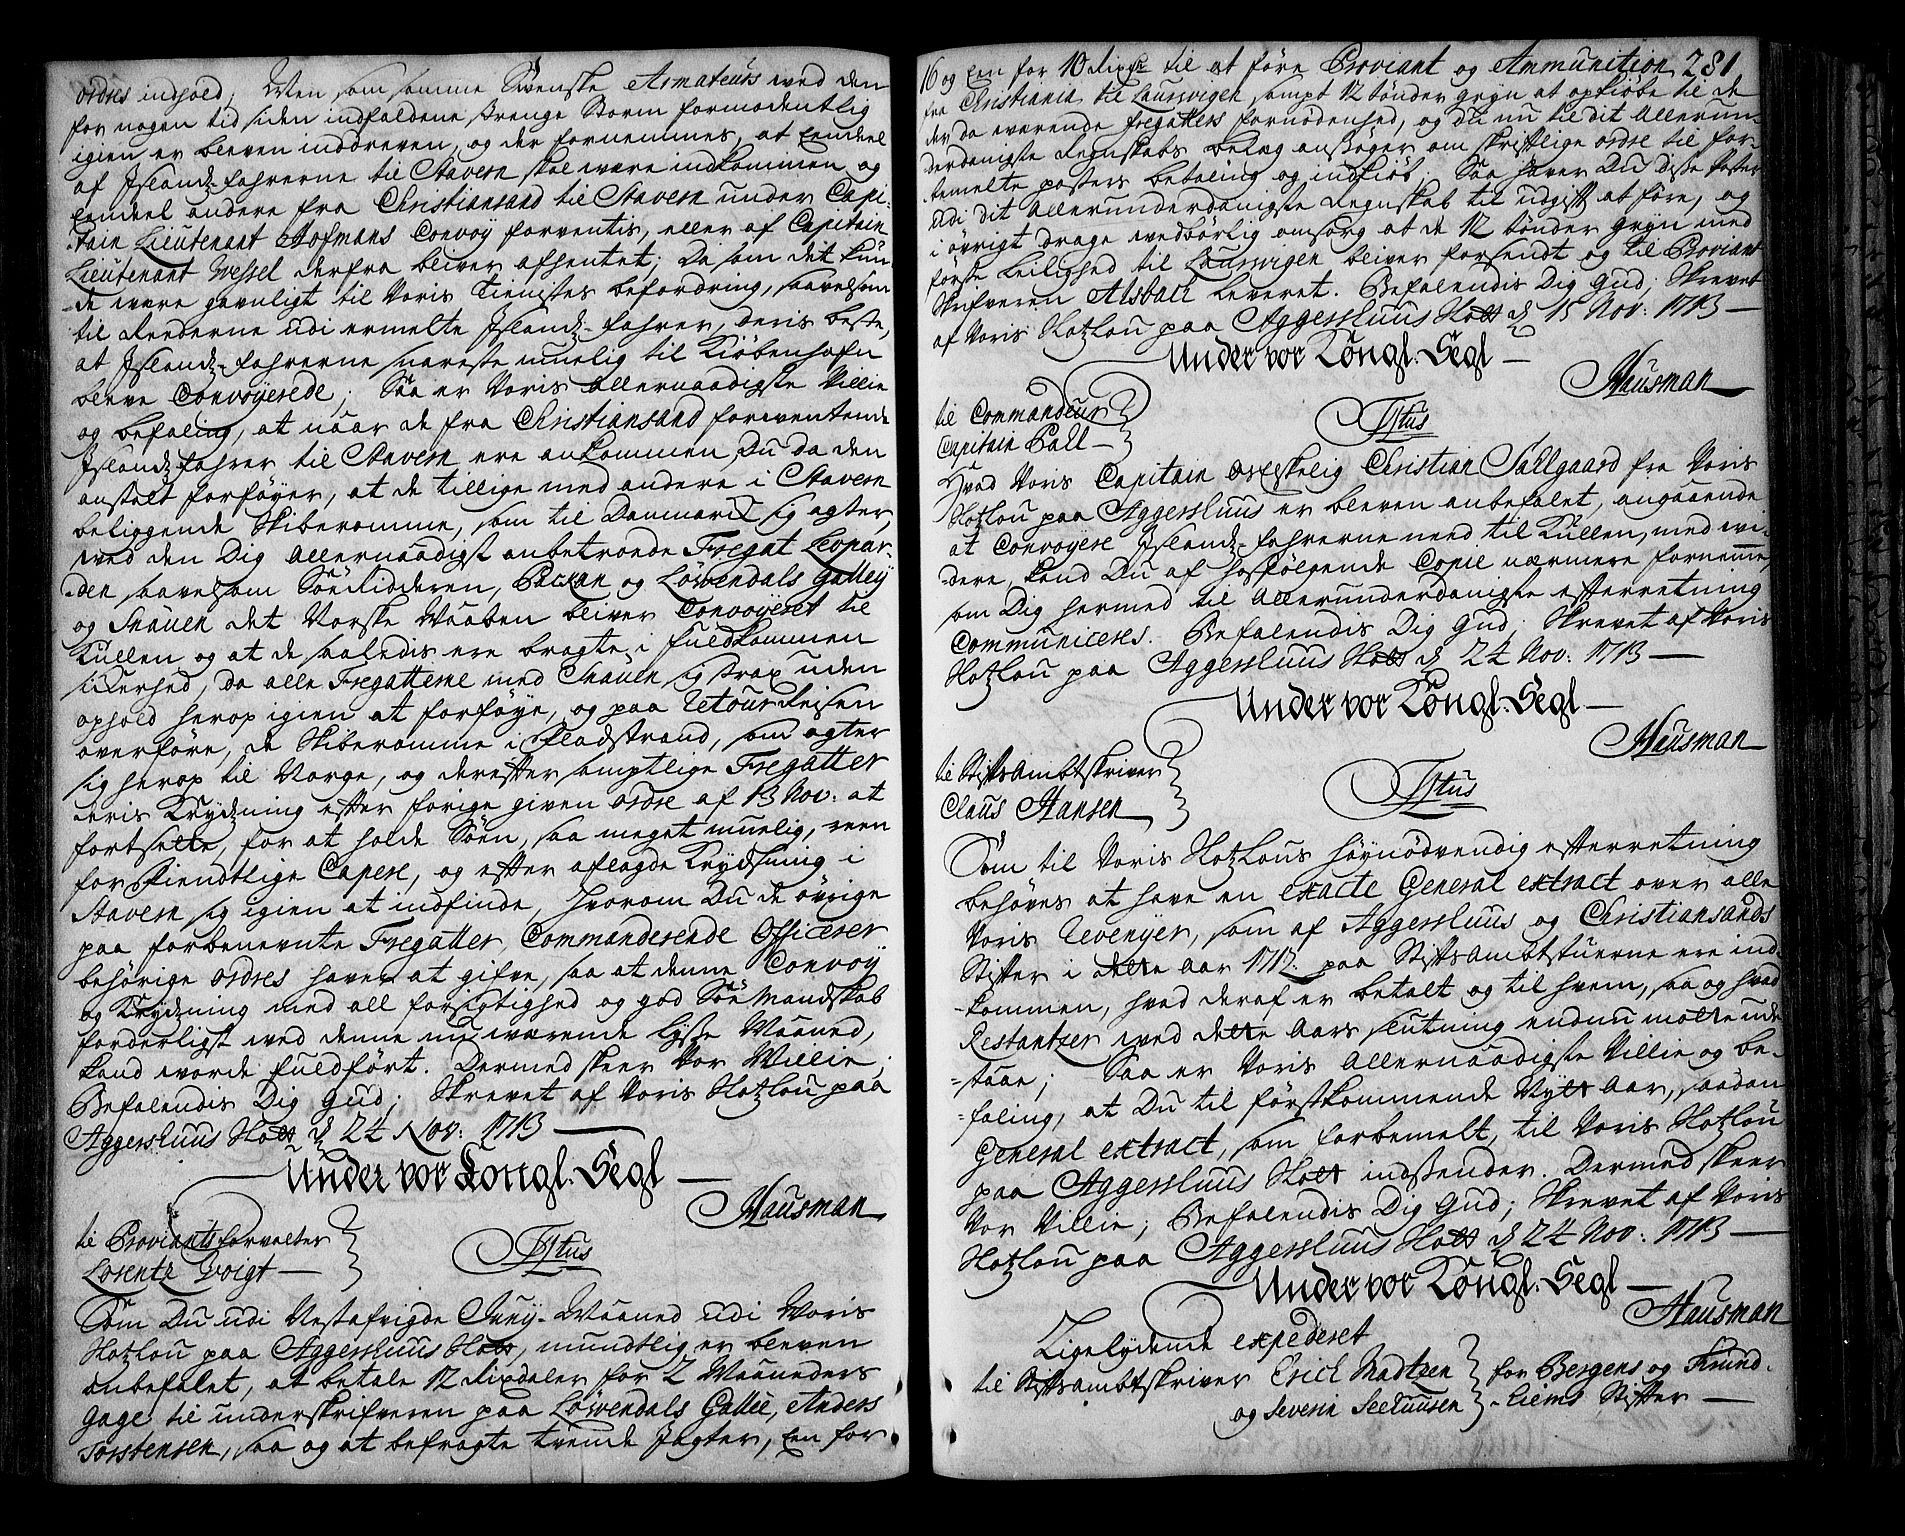 ordres indhold; Men som samme Svenske Armateurs ved den
for nogen tid siden indfaldene strenge Storm formodentlig
igien er bleven inddreven, og der fornemmes, at Eendeel
af Jslandz-fahrerne til Stavern skal være indkommen og
Eendeel andere fra Christiansand til Stavern under Capi-
tain Lieutenant Hofmans Convoy forventis, eller af Capitain
Lieutenant Wessel derfra bliver afhentet; Da som det kun-
de være gavnligt til Voris Tienistes befordring, saavelsom
til Reederne udi ermelte Jslandz-fahrer, deris beste,
at Jslandz-fahrerne snareste muelig til Kiøbenhafn
bleve Convoyerede; Saa er Voris allernaadigste Villie
og befaling, at naar de fra Christiansand foreventende
Jslandz-fahrer til Stavern ere ankommen, Du da den
anstalt forføyer, at de tillige med andere i Stavern
beliggende Skiberomme, som til Danmarck sig agter,
ved den Dig Allernaadigst anbetroede Fregat Leopar-
den saavelsom Søe Ridderen, Packan og Løvendals Galley
og Snauen det Norske Vaaben bliver Convoyeret til
Kullen og at de saaledis ere bragte i fuldkommen
sickerhed, da alle Fregatterne med Snauen sig strax uden
ophold herop igien at forføye, og paa Retour Reisen
overføre, de Skiberomme i Fladstrand, som agter
sig herop til Norge, og derefter samptlige Fregatter
deris Krydzning efter forige given ordre af 13 Nov: at
fortsette, for at holde Søen, saa meget muelig, reen
for Fiendtlige Capere, og efter aflagde Krydsning i
Stavern sig igien at indfinde, hvorom Du de øvrige
paa forbenevnte Fregatter Commanderende Officerer
behørige ordres haver at gifve, saa at denne Convoy
og Krydzning med all forsigtighed og god Søe Mandskab
forderligst ved denne nu værende lyse Maaned,
kand vorde fuldført. Dermed skeer Vor Villie;
Befalendis Dig Gud; Skrevet af Voris Slotzlou paa
Aggershuus Slott d 24 Nov: 1713
Under vor Kongl. Segl
Hausman
til Proviantsforvalter
Lorentz Voigt
Titus
Som Du udi Nestafvigde Juny-Maaned udi Voris
Slotzlou paa Aggershuus Slott, mundtlig er bleven
anbefalet, at betale 12 Rixdaler for 2 Maaneders
gage til underskrifveren paa Løvendals Gallie, Anders
Torstensen, saa og at befragte tvende Jagter, Een for
281
16 og Een for 10 Rixdr til at føre Proviant og Ammunition
fra Christiania til Laursvigen sampt 12 tønder gryn at opkiøbe til de
der da værende fregatters fornødenhed, og du nu til dit Allerun-
derdanigste Regnskabs belæg ansøger om skriftlige ordre til for-
bemelte posters betaling og indkiøb; Saa haver Du disse poster
udi dit Allerunderdanigste Regnskab til udgift at føre, og
i øvrigt drage vedbørlig omsorg at de 12 tønder gryn med
første leilighed til Laursvigen bliver forsendt og til Proviant
Skrifveren Alsball leveret. Befalendis Dig Gud; Skrevet
af Voris Slotzlou paa Aggershuus Slott d 15 Nov: 1713
Under vor Kongl. Segl
Hausman
til Commandeur
Capitain Pall
Titus
Hvad Voris Capitain Christian Tullgaard fra Voris
Slotzlou paa Aggershuus er bleven anbefalet, angaaende
at Convoyere Jslandz-fahrerne need til Kullen, med vi-
dere, kand Du af hosfølgende Copie nærmere fornemme,
som Dig hermed til Allerunderdanigste efterretning
Communiceres. Befalendis Dig Gud; Skrevet af Voris
Slotzlou paa Aggershuus Slott d 24 Nov: 1713
Under vor Kongl. Segl
Hausman
til Stiftsambtskriver
Claus Hansen
Titus
Som til Voris Slotzlous høynødvendig efterretning
behøves at have en exacte General extract over alle
Voris Revenyer, som af Aggershuus og Christiansands
Stifter i dette Aar 1713 paa Stiftsambtstuerne ere ind-
kommen, hvad deraf er betalt og til hvem, saa og hvad
Restantzer ved dette Aars slutning endnu motte ude
staae; Saa er Voris Allernaadigste Villie og be-
faling, at Du til førstkommende Nytt Aar, saadan
General extract, som forbemelt, til Voris Slotzlou
paa Aggershuus Slott indsender. Dermed skeer
Vor Villie; Befalendis Dig Gud; Skrevet af Voris
Slotzlou paa Aggershuus Slott d 24 Nov: 1713
Under vor Kongl. Segl
Hausman
Ligelydende expederet
til Stiftsambtskriver Erich Madtzen for Bergens og Trund-
og Severin Seehuusen hiems Stifter